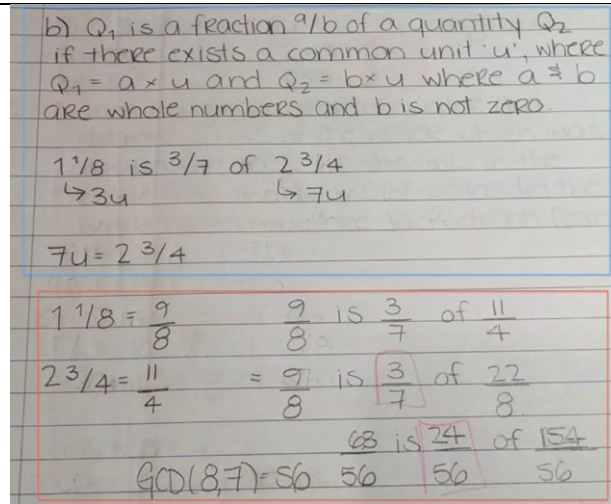 b) Q₁ is a fraction a/b of a quantity Q₂
if there exists a common unit 'u', where
Q₁ = a × u and Q₂ = b × u where a & b
are whole numbers and b is not zero.
1 1/8 is 3/7 of 2 3/4
↳ 3u ↳ 7u
7u = 2 3/4
1 1/8 = 9/8 9/8 is 3/7 of 11/4
2 3/4 = 11/4 = 9/8 is 3/7 of 22/8
63/56 is 24/56 of 154/56
GCD(8,7) = 56